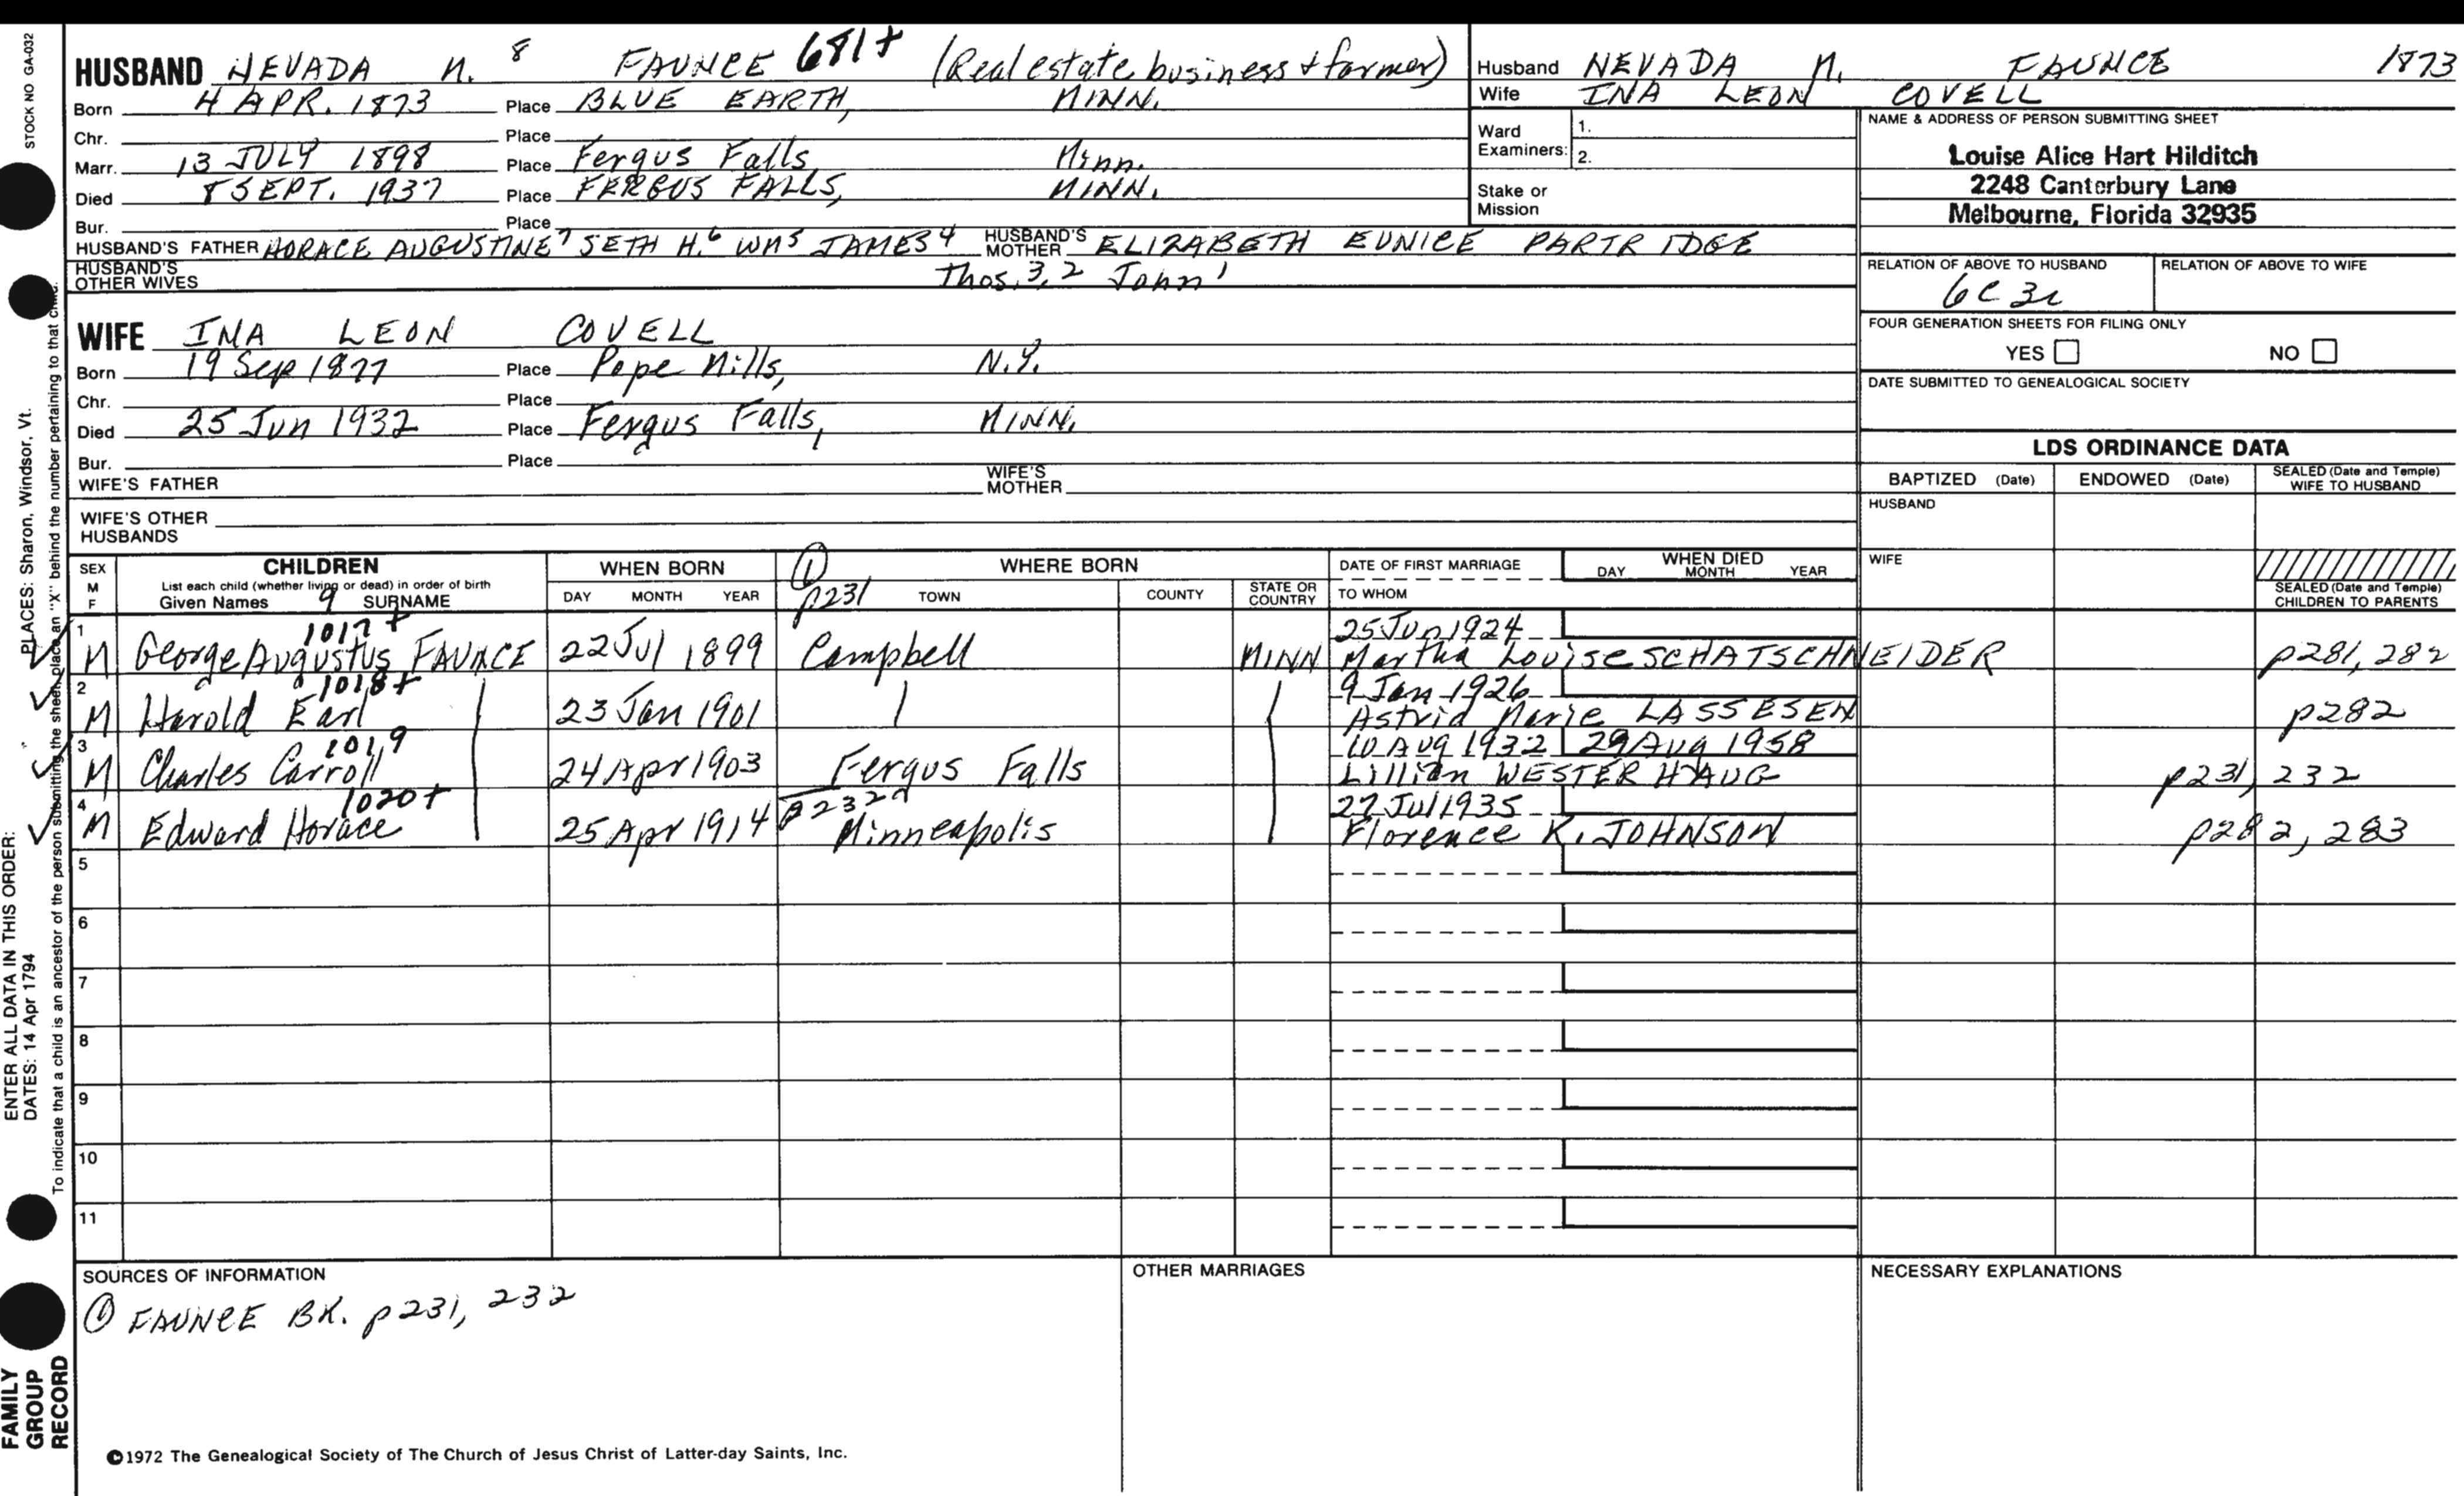 STOCK NO GA-032
HUSBAND NEVADA M. 8 FAUNCE 681+ (Real estate business + farmer)
Born 4 APR. 1873 Place BLUE EARTH, MINN.
Chr. Place
Marr. 13 JULY 1898 Place Fergus Falls, Minn.
Died 8 SEPT. 1937 Place FERGUS FALLS, MINN.
Bur. Place
HUSBAND'S FATHER HORACE AUGUSTINE 7 SETH H. 6 WM 5 JAMES 4 HUSBAND'S MOTHER ELIZABETH EUNICE PARTRIDGE
HUSBAND'S OTHER WIVES Thos. 3, 2 John 1
WIFE INA LEON COVELL
Born 19 Sep 1877 Place Pope Mills, N.Y.
Chr. Place
Died 25 Jun 1932 Place Fergus Falls, MINN.
Bur. Place
WIFE'S FATHER WIFE'S MOTHER
WIFE'S OTHER HUSBANDS
Husband NEVADA M. FAUNCE 1873
Wife INA LEON COVELL
Ward Examiners: 1.
2.
Stake or Mission
NAME & ADDRESS OF PERSON SUBMITTING SHEET
Louise Alice Hart Hilditch
2248 Canterbury Lane
Melbourne, Florida 32935
RELATION OF ABOVE TO HUSBAND RELATION OF ABOVE TO WIFE
6C 3r
FOUR GENERATION SHEETS FOR FILING ONLY
YES NO
DATE SUBMITTED TO GENEALOGICAL SOCIETY
LDS ORDINANCE DATA
BAPTIZED (Date) ENDOWED (Date) SEALED (Date and Temple) WIFE TO HUSBAND
HUSBAND
WIFE
SEALED (Date and Temple) CHILDREN TO PARENTS
SEX M F CHILDREN WHEN BORN ① WHERE BORN DATE OF FIRST MARRIAGE WHEN DIED
List each child (whether living or dead) in order of birth
Given Names 9 SURNAME DAY MONTH YEAR p231 TOWN COUNTY STATE OR COUNTRY TO WHOM DAY MONTH YEAR
1 1017+ 25 Jun 1924
M George Augustus FAUNCE 22 Jul 1899 Campbell MINN Martha Louise SCHATSCHNEIDER p281, 282
2 1018+ 9 Jan 1926
M Harold Earl 23 Jan 1901 Astrid Marie LASSESEN p282
3 1019 10 Aug 1932 29 Aug 1958
M Charles Carroll 24 Apr 1903 Fergus Falls Lillian WESTERHAUG p231, 232
4 1020+ p232 27 Jul 1935
M Edward Horace 25 Apr 1914 Minneapolis Florence K. JOHNSON p282, 283
5
6
7
8
9
10
11
SOURCES OF INFORMATION OTHER MARRIAGES NECESSARY EXPLANATIONS
① FAUNCE BK. p231, 232
©1972 The Genealogical Society of The Church of Jesus Christ of Latter-day Saints, Inc.
FAMILY GROUP RECORD
ENTER ALL DATA IN THIS ORDER:
DATES: 14 Apr 1794 PLACES: Sharon, Windsor, Vt.
To indicate that a child is an ancestor of the person submitting the sheet, place an "X" behind the number pertaining to that child.